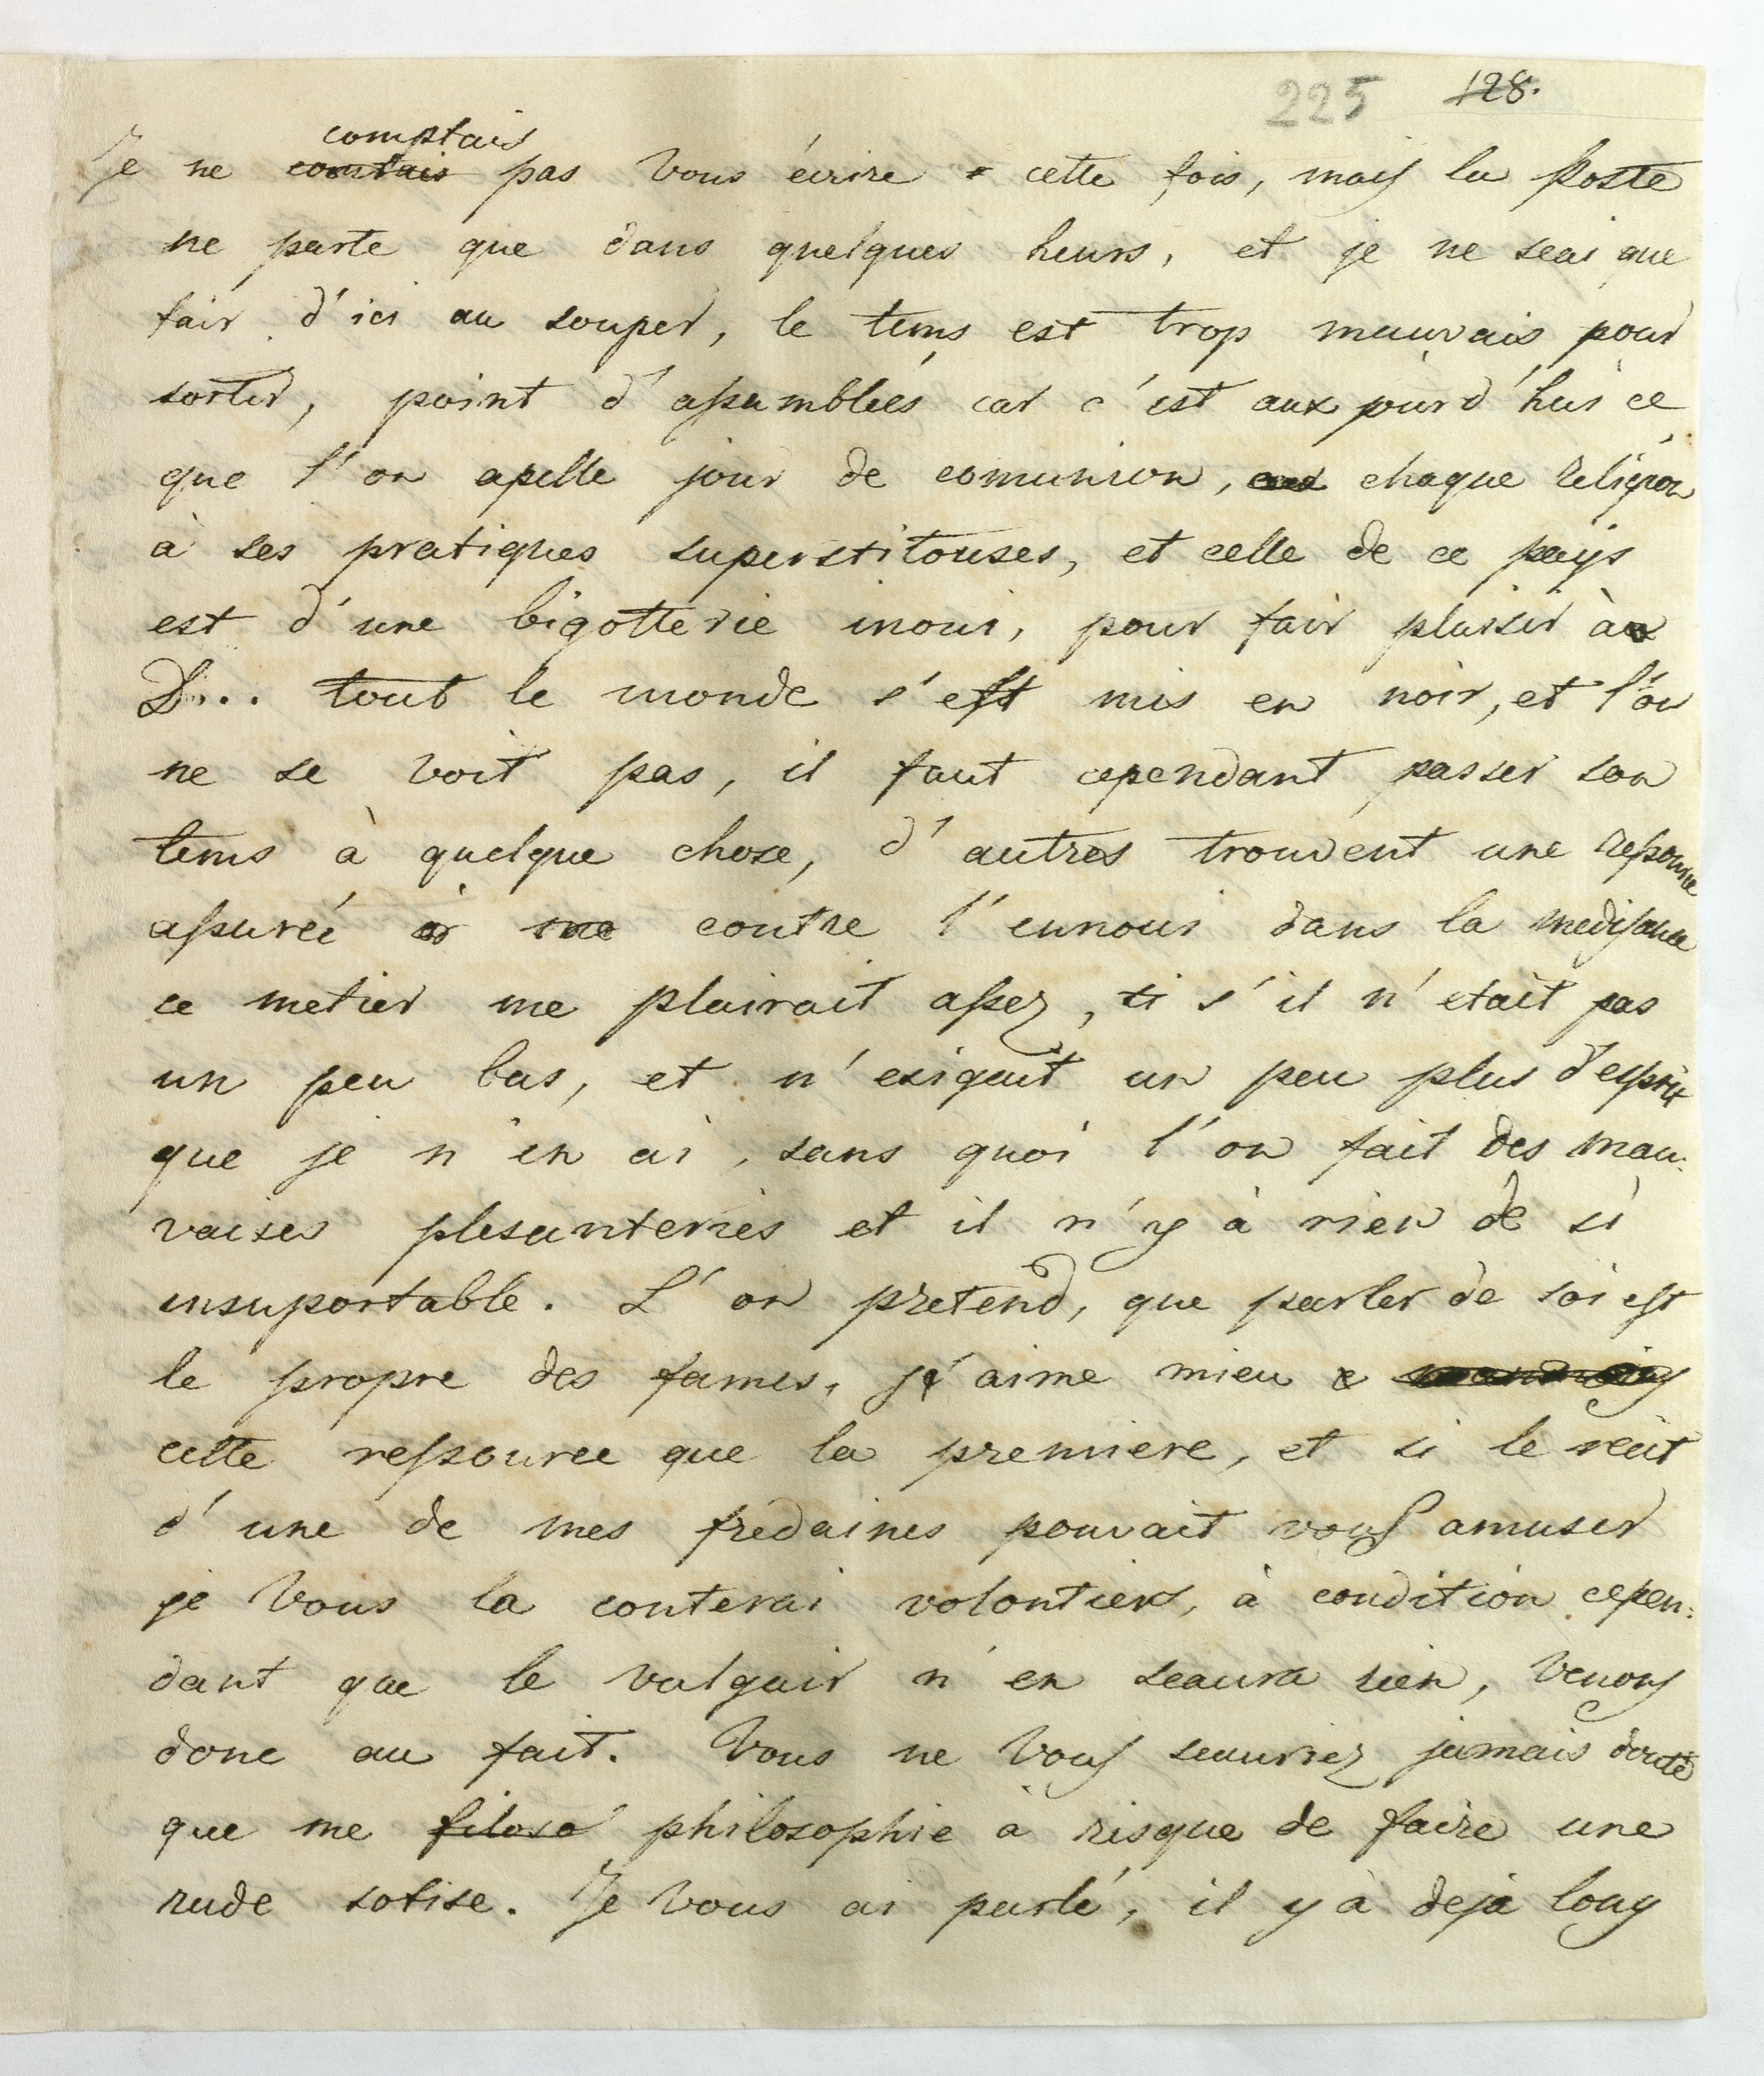 225 128.
comptais
Je ne comtais pas vous écrire cette fois, mais la poste
ne parte que dans quelques heurs, et je ne scai que
fair d'ici au souper, le tems est trop mauvais pour
sortir, point d'assamblées car c'est aux jourd'hui ce
que l'on apelle jour de comunion, chaque religion
à ses pratiques superstitouses, et celle de ce pays
est d'une bigotterie inoui, pour fair plaisir à
D... tout le monde s'est mis en noir, et l'on
ne se voit pas, il faut cependant passer son
tems à quelque chose, d'autres trouvent une ressource
assureé contre l'ennoui dans la medisance
ce metier me plairait assez, si s'il n'etait pas
un peu bas, et n'exigait un peu plus d'esprit
que je n'en ai, sans quoi l'on fait des mau-
vaises plesanteries et il n'y à rien de si
insuportable. L'on pretend, que parler de soi est
le propre des fames, j'aime mieu
cette ressource que la premiere, et si le récit
d'une de mes fredaines pouvait vous amuser
je vous la conterai volontiers, à condition cepen:
dant que le vulgair n'en scaura rien, venons
donc au fait. Vous ne vous scauriez jamais douté
que me filoso philosophie à risque de faire une
rude sotise. Je vous ai parlé, il y à deja long